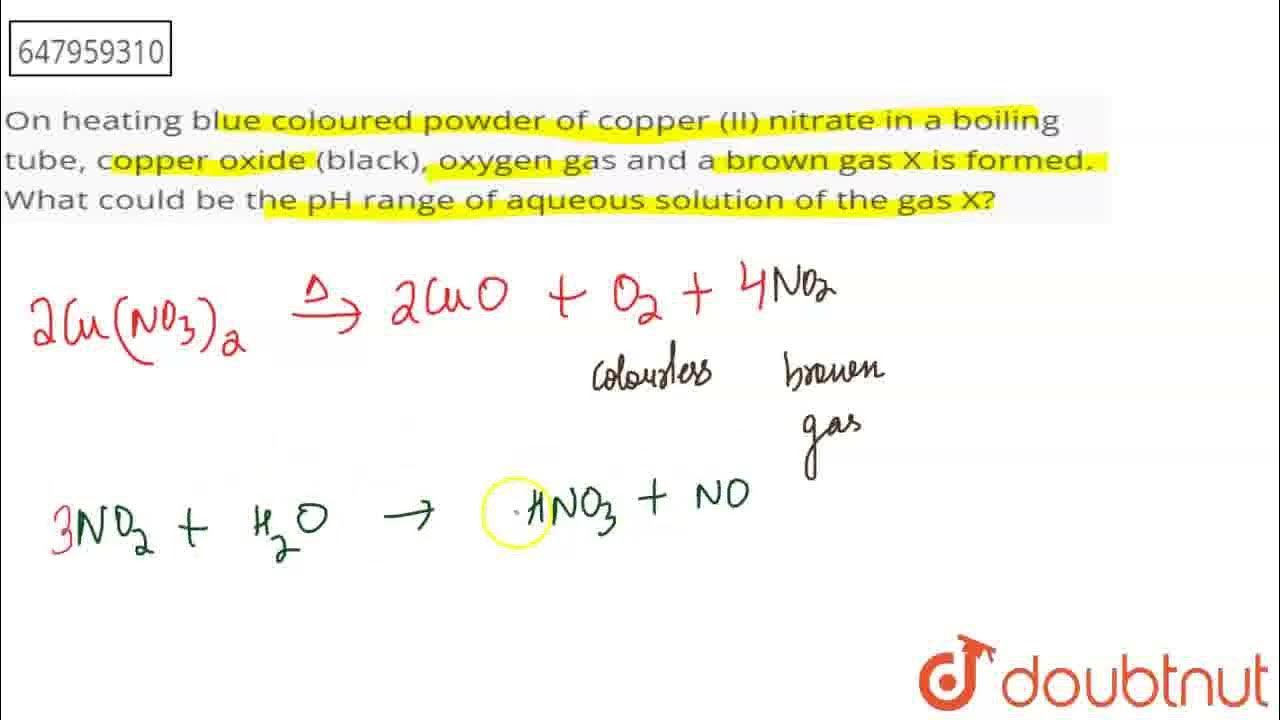 647959310
On heating blue coloured powder of copper (II) nitrate in a boiling
tube, copper oxide (black), oxygen gas and a brown gas X is formed.
What could be the pH range of aqueous solution of the gas X?
2Cu(NO3)2 Δ→ 2CuO + O2 + 4NO2
colourless brown
gas
3NO2 + H2O → HNO3 + NO
doubtnut